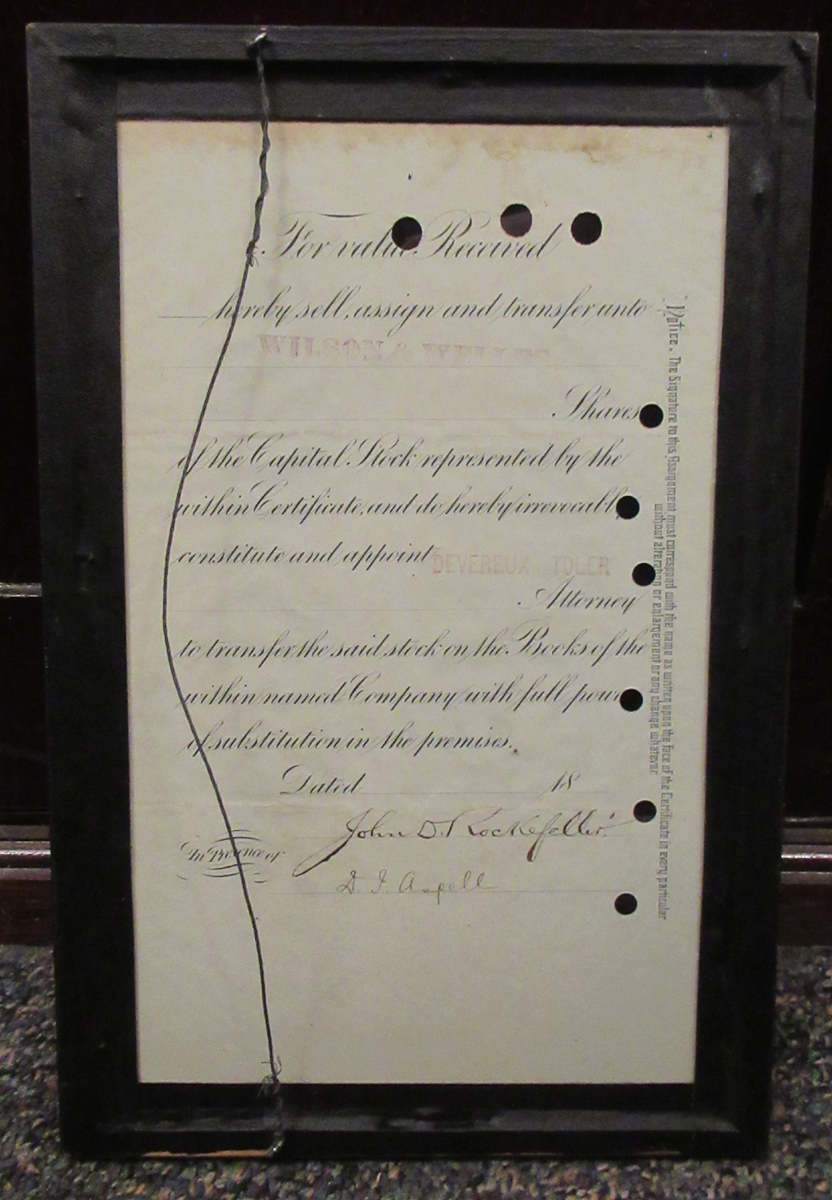 For value Received
hereby sell, assign and transfer unto
WILSON &
Shares
of the Capital Stock represented by the
within Certificate, and do hereby irrevocabl
constitute and appoint DEVEREUX TOLER
Attorney
to transfer the said stock on the Books of the
within named Company with full powe
of substitution in the premises.
Dated 18
John D. Rockefeller
In Presence of
D. I. Aspell
Notice. The Signature to this Assignment must correspond with the name as written upon the face of the Certificate in every particular
without alteration or enlargement or any change whatever.